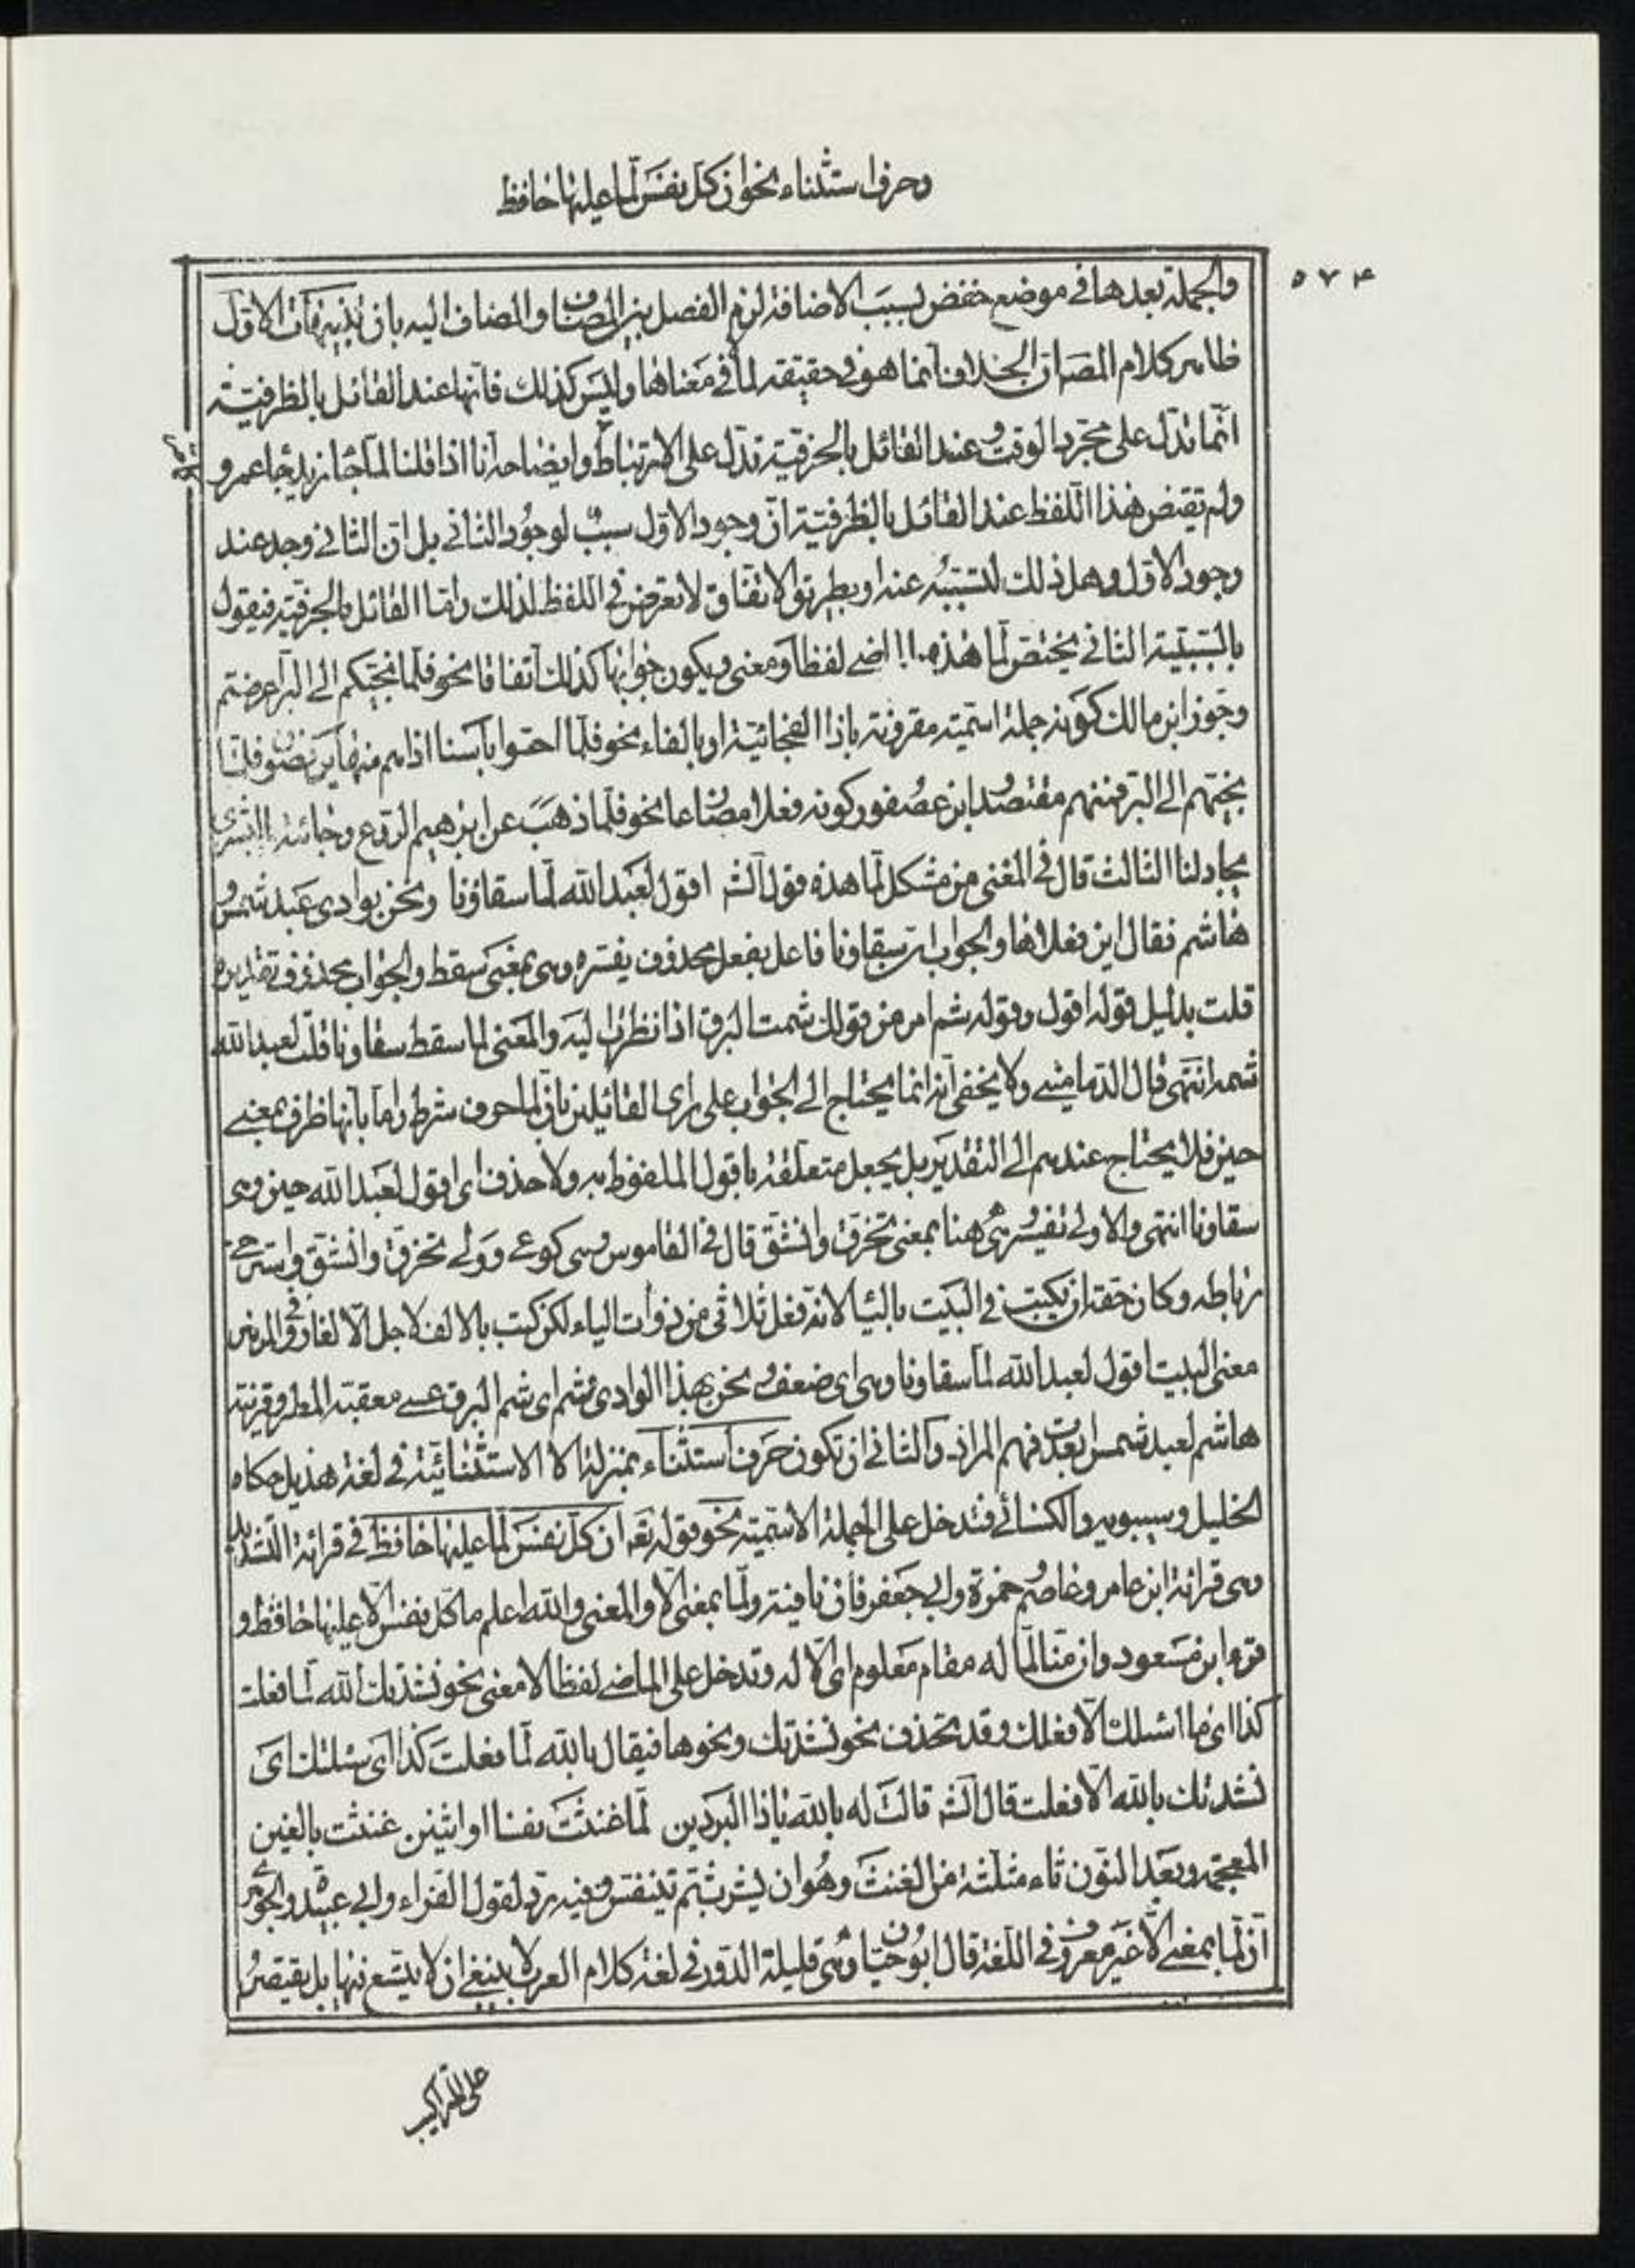 وحرف استثناء نحو ان كل نفس لما عليها حافظ
٥٧۴
والجملة بعدها في موضع خفض بسبب الاضافة لزم الفصل بين المضاف والمضاف اليه بان تنبيهات الاول
ظاهر كلام المصر ان الخلاف انما هو في حقيقة لما في معناها وليس كذلك فانها عند القائل بالظرفية
انما تدل على مجرد الوقت وعند القائل بالحرفية تدل على الارتباط وايضاحه انا اذا قلنا لما جاء زيد جاء عمرو
ولم يقتض هذا اللفظ عند القائل بالظرفية ان وجود الاول سبب لوجود الثاني بل ان الثاني وجد عند
وجود الاول وهل ذلك لتسببه عنه او بطريق الاتفاق لا تعرض في اللفظ لذلك واما القائل بالحرفية فيقول
بالسببية الثاني يختص لما هذه بالماضي لفظا ومعنى ويكون جوابها كذلك اتفاقا نحو فلما نجيكم الى البر اعرضتم
وجوز ابن مالك كونه جملة اسمية مقرونة باذا الفجائية او بالفاء نحو فلما احسوا باسنا اذا هم منها يركضون فلما
نجيهم الى البر فمنهم مقتصد وابن عصفور كونه فعلا مضارعا نحو فلما ذهب عن ابرهيم الروع وجائته البشرى
يجادلنا الثالث قال في المغنى من مشكل لما هذه قول الشر اقول لعبد الله لما سقاؤنا ونحن بوادي عبد شمس و
هاشم فقال اين فعلاها والجواب ان سقاونا فاعل بفعل محذوف يفسره وهى بمعنى سقط والجواب محذوف تقديره
قلت بدليل قوله اقول وقوله شم امر من قولك شمت البرق اذا نظرت اليه والمعنى لما سقط سقاونا قلت لعبد الله
شمه انتهى قال الدمامينى ولا يخفى انه انما يحتاج الى الجواب على راى القائلين بان لما حرف شرط واما بانها ظرف بمعنى
حين فلا يحتاج عندهم الى التقدير بل يجعل متعلقة باقول الملفوظ به ولا حذف اى اقول لعبد الله حين وهى
سقاونا انتهى والاولى تفسير وهى هنا بمعنى تخرق وانشق قال في القاموس وهى كوعى وولى تخرق وانشق واسترخى
رباطه وكان حقه ان يكتب في البيت بالياء لانه فعل ثلاثى من ذوات الياء لكن كتب بالالف لاجل الالغاز
معنى البيت اقول لعبد الله لما سقاونا وهى اى ضعف ونحن بهذا الوادى شم اى شم البرق عسى معقبة المطر وقرينة
هاشم لعبد شمس ابعدت فهم المراد والثانى ان تكون حرف استثناء بمنزلة الا الاستثنائية في لغة هذيل حكاه
الخليل وسيبويه والكسائى فتدخل على الجملة الاسمية نحو قوله تعه ان كل نفس لما عليها حافظ في قرائة التشديد
وهى قرائة ابن عامر وعاصم وحمزة وابى جعفر فان نافية ولما بمعنى الا والمعنى والله اعلم ما كل نفس الا عليها حافظ و
قرء ابن مسعود وان منا لما له مقام معلوم اى الا له وتدخل على الماضى لفظا لا معنى نحو نشدتك الله لما فعلت
كذا اى ما اسئلك الا فعلك وقد تحذف نحو نشدتك ونحوها فيقال بالله لما فعلت كذا اى سئلتك اى
نشدتك بالله الا فعلت قال الشر قالت له بالله ياذا البردين لما غنثت نفسا او اثنين غنثت بالغين
المعجمة وبعد النون ثاء مثلثة من الغنث وهو ان يشرب ثم يتنفس وفيه رد لقول الفراء وابى عبيدة والجوهرى
ان لما بمعنى الا غير معروف في اللغة قال ابو حيان وهى قليلة الدور في لغة كلام العرب ينبغى ان لا يتسع فيها بل يقتصر
على التراكيب